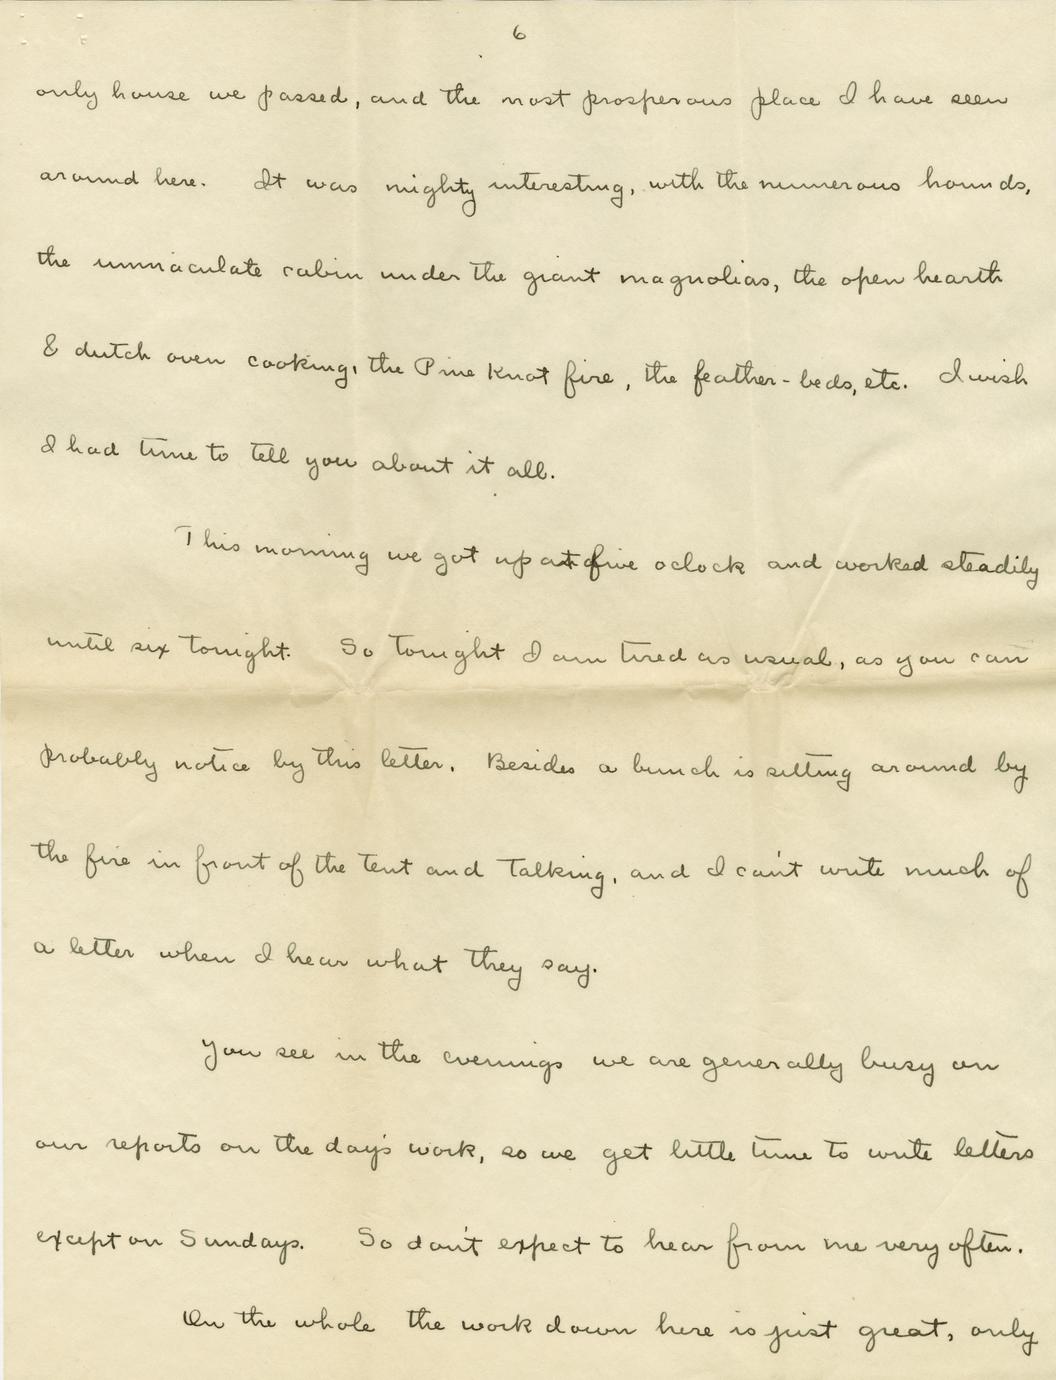 6
only house we passed, and the most prosperous place I have seen
around here. It was mighty interesting, with the numerous hounds,
the immaculate cabin under the giant magnolias, the open hearth
& dutch oven cooking, the Pine Knot fire, the feather-beds, etc. I wish
I had time to tell you about it all.
This morning we got up at five oclock and worked steadily
until six tonight. So tonight I am tired as usual, as you can
probably notice by this letter. Besides a bunch is sitting around by
the fire in front of the tent and talking, and I can't write much of
a letter when I hear what they say.
You see in the evenings we are generally busy on
our reports on the day's work, so we get little time to write letters
except on Sundays. So don't expect to hear from me very often.
On the whole the work down here is just great, only